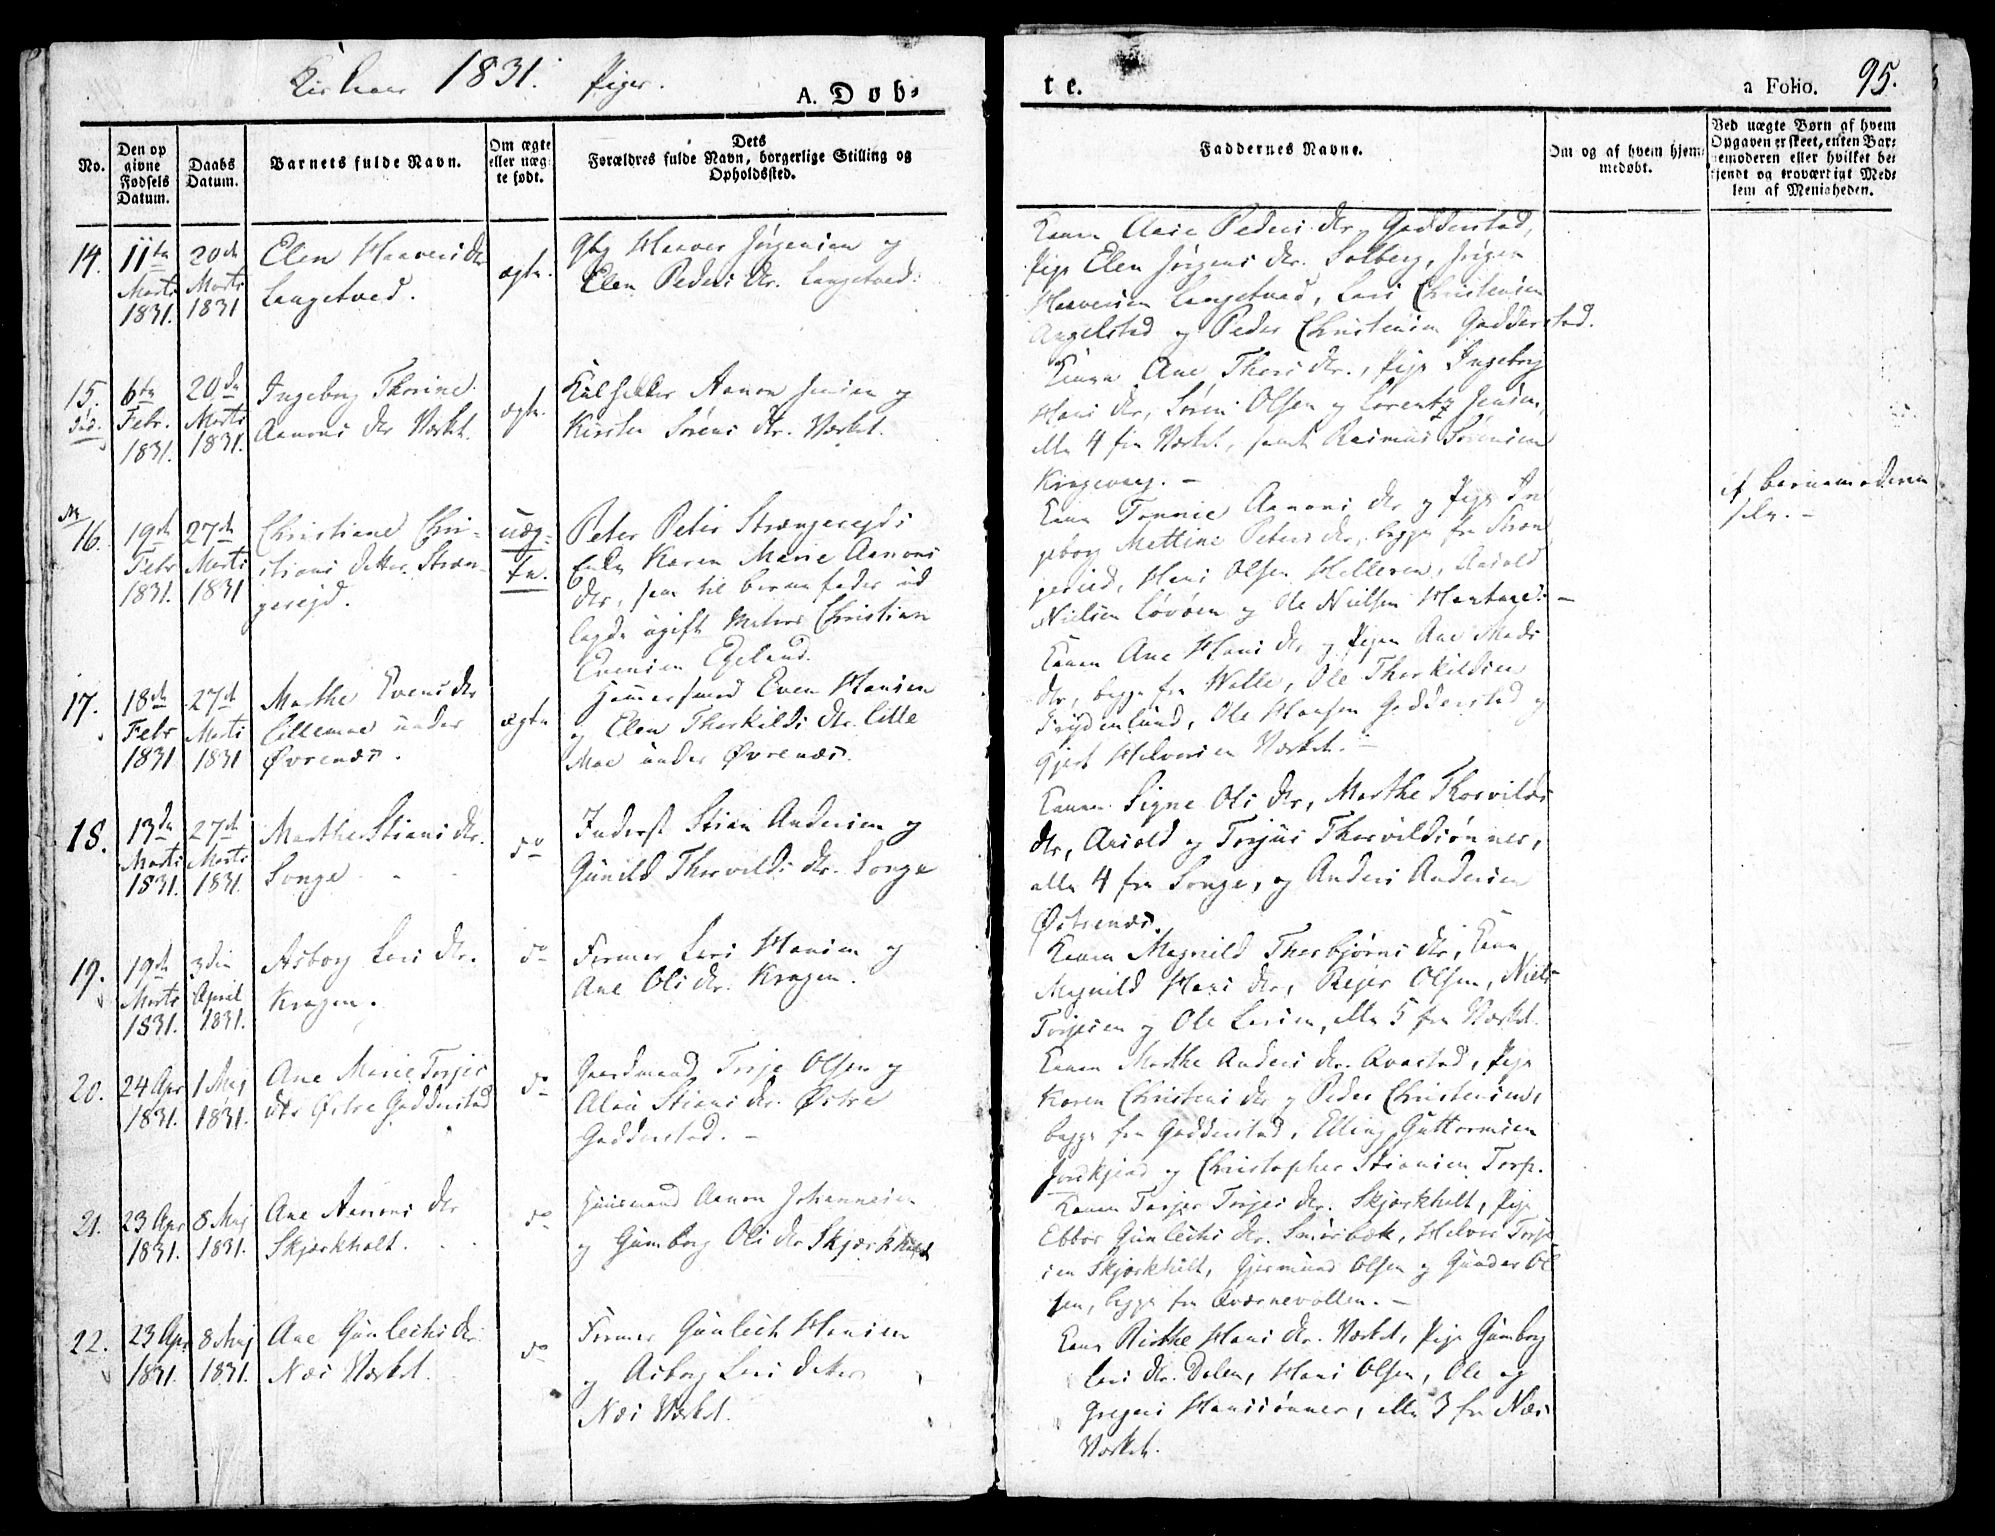 Kirkeaar 1831. Piger. A. Døb-
te. a Folio. 95.
No.
Den op
givne
Fødsels
Datum.
Daabs
Datum.
Barnets fulde Navn.
Om ægte
eller uæg-
te født.
Dets
Forældres fulde Navn, borgerlige Stilling og
Opholdssted.
Faddernes Navne.
Om og af hvem hjem-
medøbt.
Ved uægte Børn af hvem
Opgaven er skeet, enten Bar-
nemoderen eller hvilket be-
kjendt og troværdigt Med-
lem af Menigheden.
14.
11te
Marts
1831.
20de
Marts
1831
Elen Haavers dtr
Langetved.
ægte.
Haaver Jørgensen og
Elen Peders dtr. Langetved.
Kone Ane Peders dtr. Godderstad,
Pige Elen Jørgens dtr. Solberg, Jørgen
Haaversen Langetved, Lars Christensen
Angelstad og Peder Christensen Gadderstad.
15.
6te
Febr.
1831.
20de
Marts
1831.
Ingeborg Thorine
Aanons dtr Værket.
ægte.
Aanon Jensen og
Kirsten Sørens dtr. Værket.
Konen Ane Thors dtr., Pige Ingeborg
Hans dtr, Søren Olsen og Lorentz Jensen,
alle 4 fra Værket, samt Rasmus Sørensen
Kragevaag. -
16.
19de
Febr
1831.
27de
Marts
1831
Christiane Chri-
stians datter. Stræn-
gereid.
uæg-
te.
Peter Peters Strængereids
Enke Karen Marie Aanons
dtr, som til barnefader ud
lagde ugift Matros Christian
Evensen Egeland.
Kone Tonnie Aanons dtr og Pige In
geborg Mettine Peters dtr, begge fra Stræn
gereid, Hans Olsen Helleren, Aasold
Nielsen Løvøen og Ole Nielsen Hantage. -
af barnemoderen
selv. -
17.
18de
Febr
1831
27de
Marts
1831
Marthe Evens dtr
Lillemoe under
Øvrenæs.
ægte
Hammersmed Even Hansen
og Elen Therkilds dtr. Lille
Moe under Øvrenæs.
Konen Ane Hans dtr og Pigen Ane Mads
dtr, begge fra Walle, Ole Therkildsen
Frydenlund, Ole Hansen Godderstad og
Gjert Halvorsen Værket. -
18.
13de
Marts
1831.
27de
Marts
1831.
Marthe Stians dtr.
Songe
do
Inderst Stian Andersen og
Gunild Thorvilds dtr. Songe
Konen Signe Ols dtr, Marthe Thorvilds
dtr, Asold og Torjus Thorvildsønner,
alle 4 fra Songe, og Anders Andersen
Østrenæs.
19.
19de
Marts
1831.
3die
April
1831.
Asborg Lars dtr.
Kragen.
do
Former Lars Hansen og
Ane Ols dtr. Kragen.
Konen Magnild Thorbjørns dtr, Kone
Magnild Hans dtr, Rejer Olsen, Niels
Torjesen og Ole Larsen, alle 5 fra Værket.
20.
24 Apr
1831.
1 Maj
1831.
Ane Marie Torjes
dtr Østre Godderstad
do
Gaardmand Torje Olsen og
Alau Stians dtr. Østre
Godderstad. -
Konen Marthe Anders dtr. Qvastad, Pige
Karen Christens dtr og Peder Christensen,
begge fra Godderstad, Elling Guttormsen
Jorkjend og Christopher Stiansen Torp.
21.
23 Apr
1831.
8 Maj
1831.
Ane Aanons dtr
Skjærkholt.
do
Huusmand Aanon Johannesen
og Gumborg Ols dtr Skjærkholt
Konen Torjer Torjes dtr. Skjærkholt, Pige
Ebbor Gunleiks dtr. Smørbæk, Halvor Torje
sen Skjærkholt, Gjermund Olsen og Gunder Ol
sen, begge fra Qværnevollen. -
22.
23 Apr
1831.
8 Maj
1831.
Ane Gunleiks dtr.
Næs Værket.
do
Former Gunleik Hansen
og Asborg Lars datter
Næs Værket.
Kone Birthe Hans dtr. Værket, Pige Gumborg
Lars dtr. Dalen, Hans Olsen, Ole og
Gregers Hanssønner, alle 3 fra Næs
Værket.